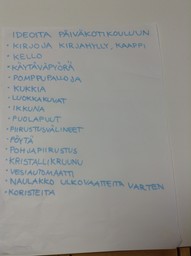 IDEOITA PÄIVÄKOTIKOULUUN
· KIRJOJA KIRJAHYLLY, KAAPPI
· KELLO
· KÄYTÄVÄPYÖRÄ
· POMPPUPALLOJA
· KUKKIA
· LUOKKAKUVAT
· IKKUNA
· PUOLAPUUT
· PIIRUSTUSVÄLINEET
· PÖYTÄ
· POHJAPIIRUSTUS
· KRISTALLIKRUUNU
· VESIAUTOMAATTI
· NAULAKKO ULKOVAATTEITA VARTEN
· KORISTEITA